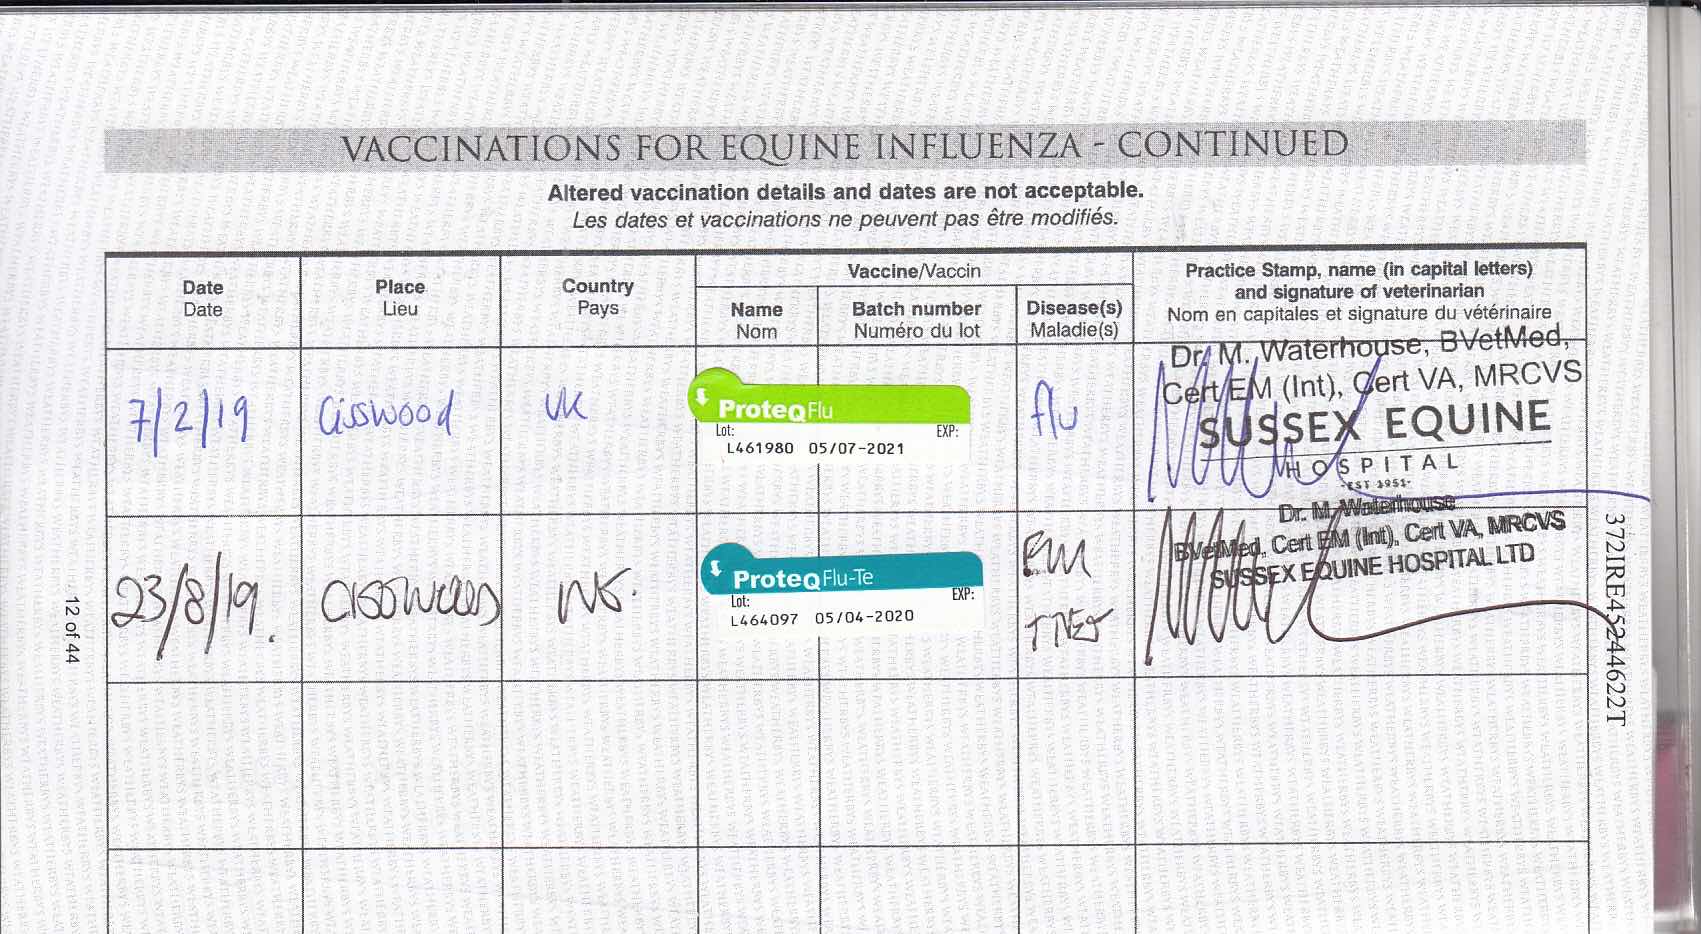 VACCINATIONS FOR EQUINE INFLUENZA - CONTINUED
Altered vaccination details and dates are not acceptable.
Les dates et vaccinations ne peuvent pas être modifiés.
Date
Date
Place
Lieu
Country
Pays
Vaccine/Vaccin
Name
Nom
Batch number
Numéro du lot
Disease(s)
Maladie(s)
Practice Stamp, name (in capital letters)
and signature of veterinarian
Nom en capitales et signature du vétérinaire
7/2/19
Cisswood
UK
ProteqFlu
Lot: EXP:
L461980 05/07-2021
flu
Dr. M. Waterhouse, BVetMed,
Cert EM (Int), Cert VA, MRCVS
SUSSEX EQUINE
HOSPITAL
-EST 1951-
23/8/19.
ProteqFlu-Te
Lot: EXP:
L464097 05/04-2020
Dr. M. Waterhouse
BVetMed, Cert EM (Int), Cert VA, MRCVS
SUSSEX EQUINE HOSPITAL LTD
12 of 44
372IRE45244622T